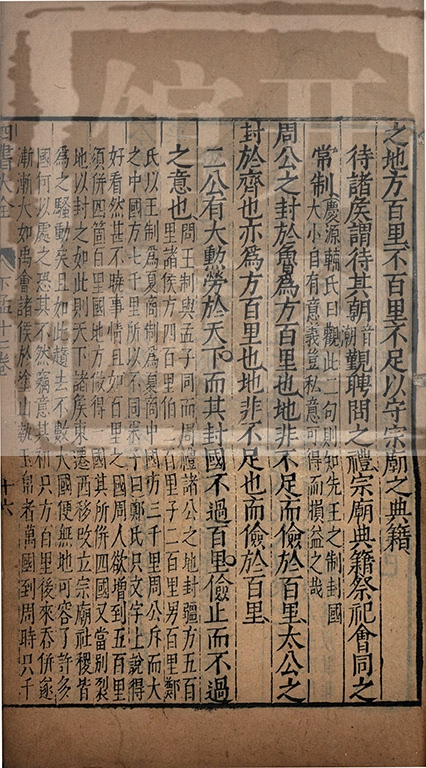 之地方百里不百里不足以守宗廟之典籍
待諸侯謂待其朝音潮覲聘問之禮宗廟典籍祭祀會同之
常制慶源輔氏曰觀此二句則知先王之制封國
大小自有意義豈私意可得而損益之哉
周公之封於魯為方百里也地非不足而儉於百里太公之
封於齊也亦為方百里也地非不足也而儉於百里
二公有大勳勞於天下而其封國不過百里儉止而不過
之意也問王制與孟子同而周禮諸公之地封疆方五百
里諸侯方四百里伯三百里子二百里男百里鄭
氏以王制為夏商制為夏商中國方三千里周公斥而大
之中國方七千里所以不同朱子曰鄭氏只文字上說得
好看然甚不曉事情且如百里之國周人欲增到五百里
須併四箇百里國地方做得一國其所併四國又當別裂
地以封之如此則天下諸侯東遷西移改立宗廟社稷皆
為之騷動矣且如此趲去不數大國便無地可容了許多
國何以處之恐其不然竊意其初只方百里後來吞併遂
漸漸大如禹會諸侯於塗山執玉帛者萬國到周時只千
四書大全 十六